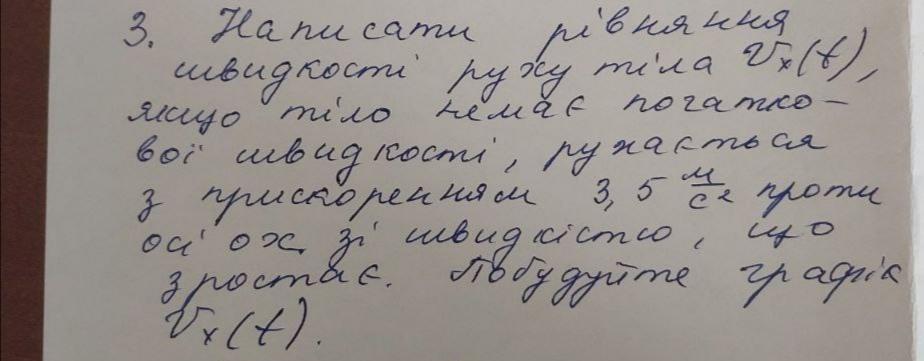 3. Написати рівняння
швидкості руху тіла Vₓ(t),
якщо тіло немає початко-
вої швидкості, рухається
з прискоренням 3,5 м/с² проти
осі ох зі швидкістю, що
зростає. Побудуйте графік
Vₓ(t).